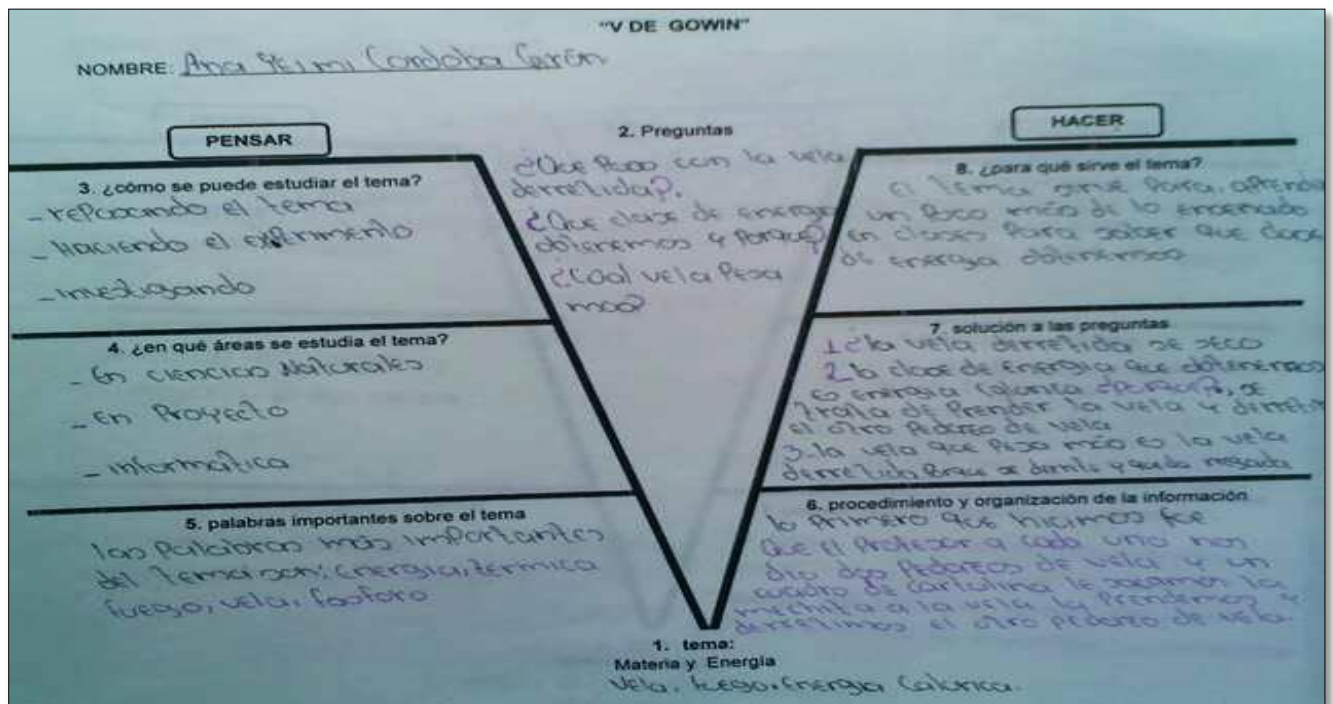 "V DE GOWIN"
NOMBRE: Ana Yeimi Cordoba Cerón
PENSAR
3. ¿cómo se puede estudiar el tema?
- repasando el tema
- Haciendo el experimento
- investigando
4. ¿en qué áreas se estudia el tema?
- En ciencias Naturales
- En Proyecto
- informática
5. palabras importantes sobre el tema
las Palabras más importantes
del tema son: energia, termica
fuego, vela, fosforo
2. Preguntas
¿Que Paso con la vela
derretida?.
¿Que clase de energia
obtenemos y Porque?
¿Cual vela Pesa
mas?
HACER
8. ¿para qué sirve el tema?
El tema sirve Para, aprender
un Poco más de lo enseñado
en clases Para saber que clase
de energia obtenemos
7. solución a las preguntas
1 la vela derretida se seco
2 la clase de Energia que obtenemos
es energia Calorica, se
trata de Prender la vela y derretir
el otro Pedazo de vela
3. la vela que Peso más es la vela
derretida Porque se derritio y quedo
6. procedimiento y organización de la información
lo Primero que hicimos fue
que el Profesor a cada uno nos
dio dos Pedazos de vela y un
cuadro de cartulina le sacamos la
mechita a la vela la Prendemos y
derretimos el otro pedazo de vela.
1. tema:
Materia y Energía
Vela, fuego, Energia Calorica.